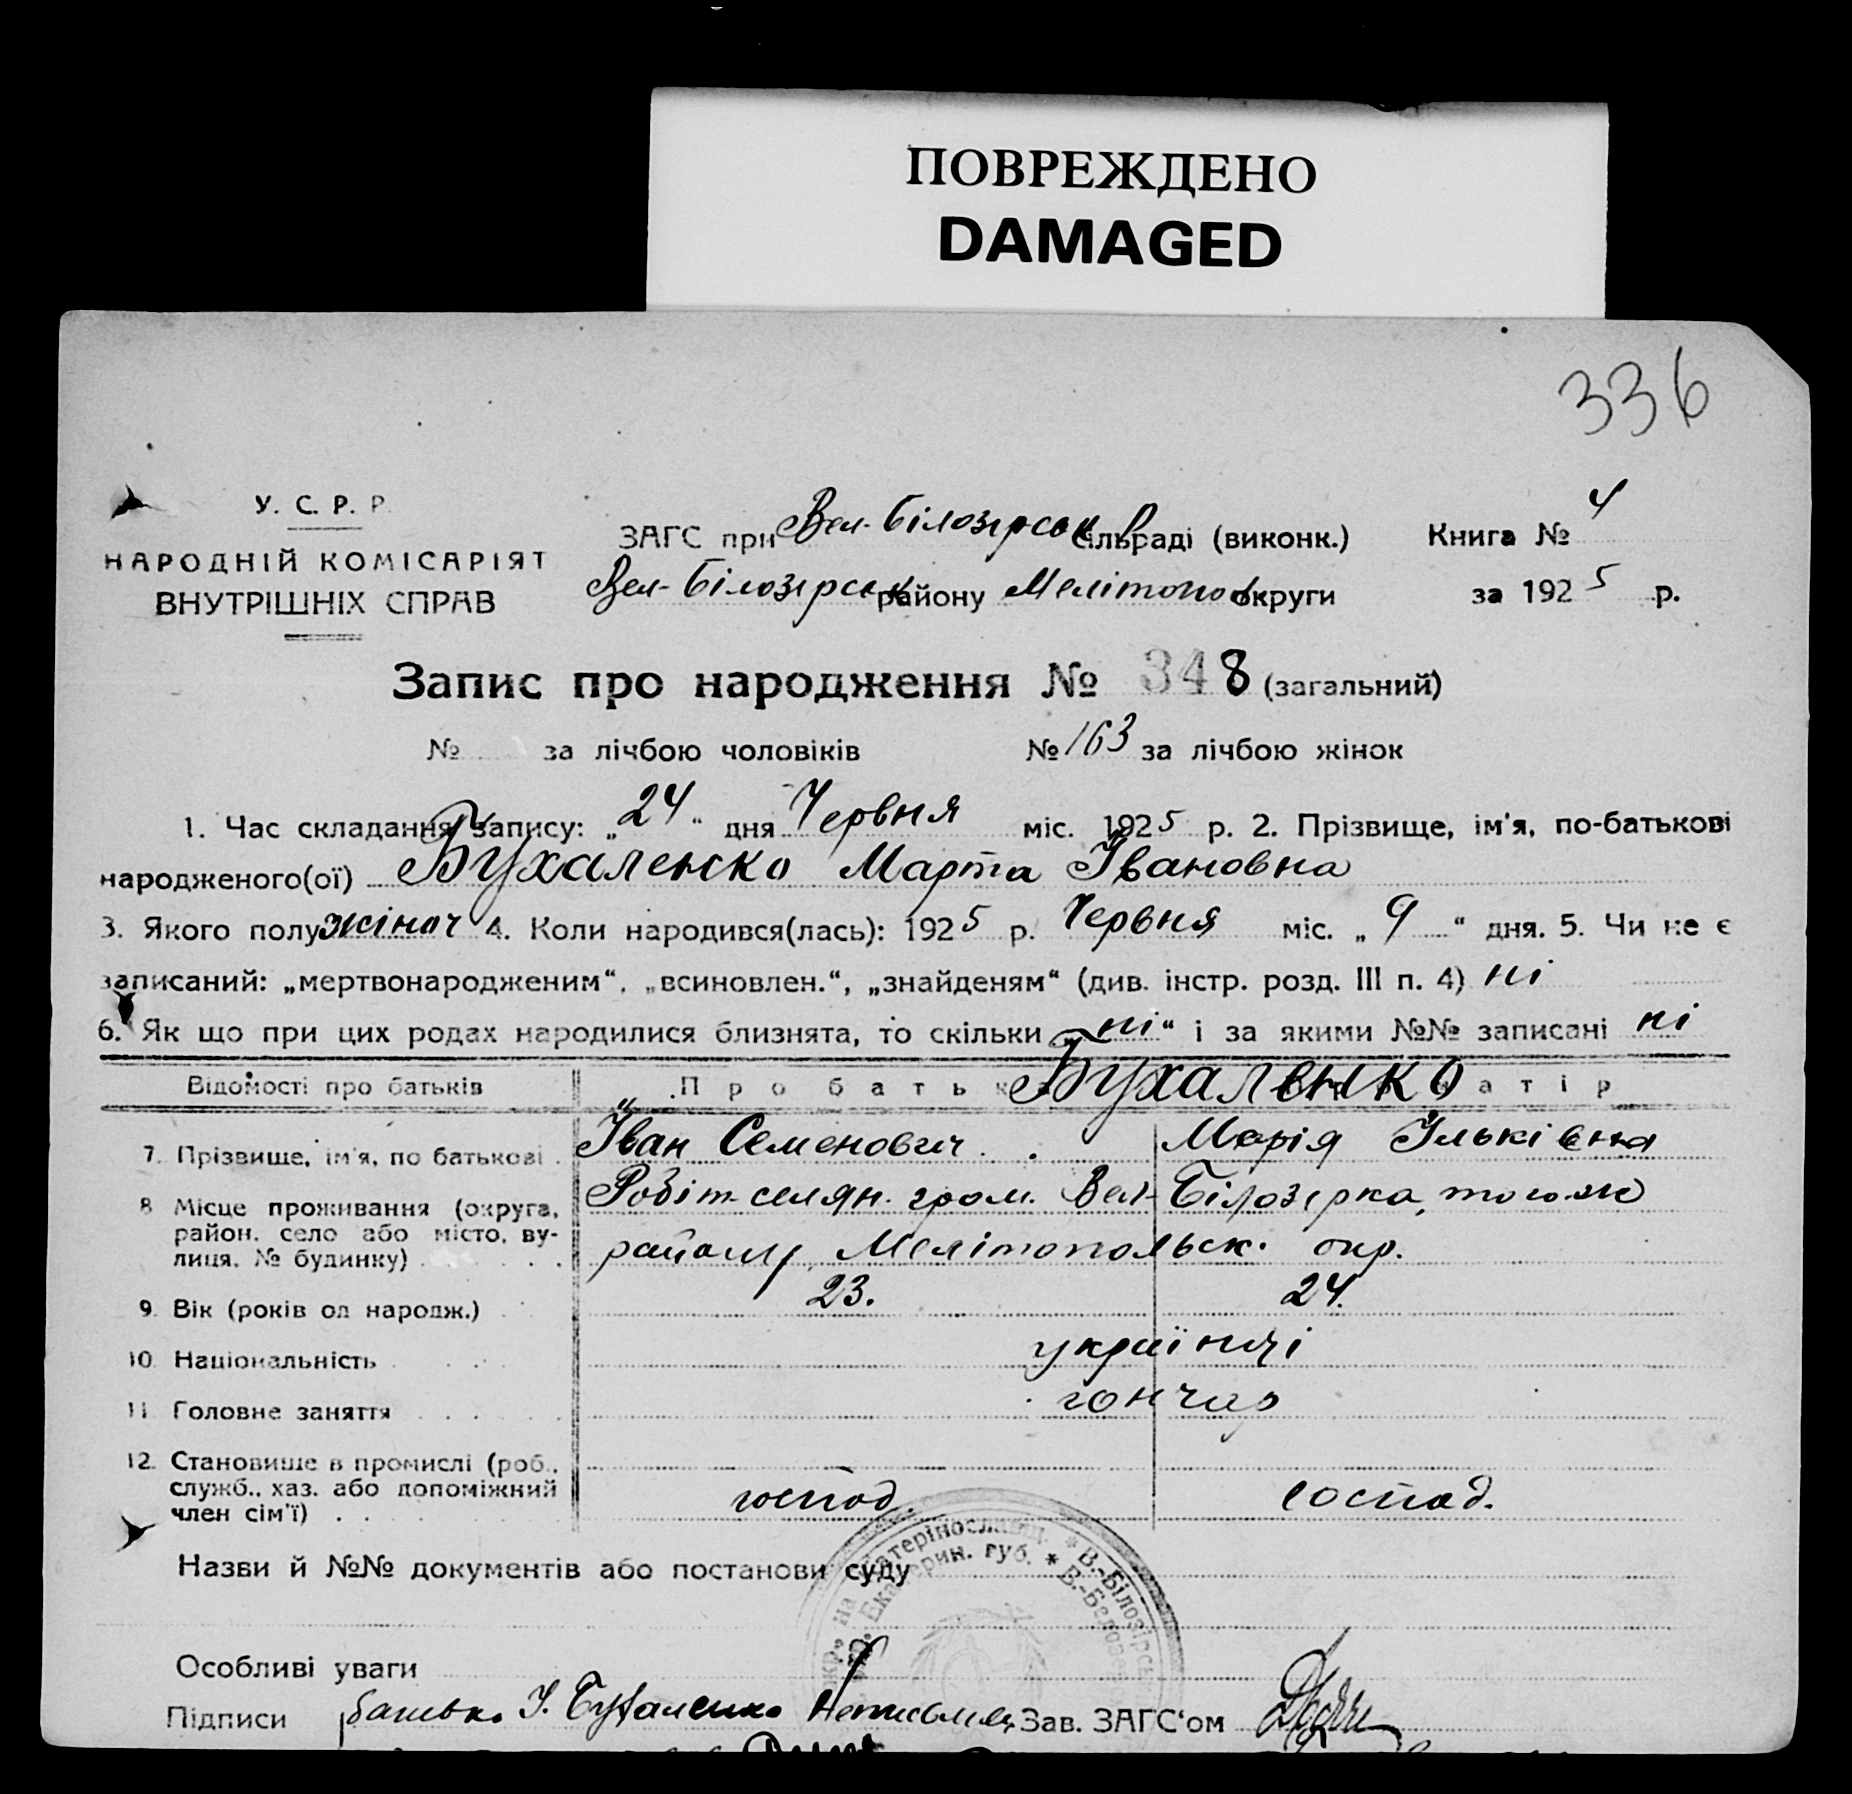 ПОВРЕЖДЕНО
DAMAGED
336
У. С. Р. Р.
НАРОДНІЙ КОМІСАРІЯТ
ВНУТРІШНІХ СПРАВ
ЗАГС при Вел-Білозірськ сільраді (виконк.)
Книга № 4
Вел-Білозірськ району Мелітопольс округи
за 1925 р.
Запис про народження № 348 (загальний)
№ за лічбою чоловіків № 163 за лічбою жінок
1. Час складання запису: „24" дня Червня міс. 1925 р. 2. Прізвище, ім'я, по-батькові
народженого(ої) Бухаленко Марта Івановна
3. Якого полу жіноч 4. Коли народився(лась): 1925 р. Червня міс. „9" дня. 5. Чи не є
записаний: „мертвонародженим", „всиновлен.", „знайденям" (див. інстр. розд. III п. 4) ні
6. Як що при цих родах народилися близнята, то скільки „ні" і за якими №№ записані ні
Відомості про батьків Про батька Бухаленко матір
7. Прізвище, ім'я, по батькові Іван Семенович. Марія Ільківна
8 Місце проживання (округа, район, село або місто, вулиця, № будинку) Робіт-селян. гром. Вел-Білозірка, того-ж
району, Мелітопольськ. окр.
9. Вік (років од народж.) 23. 24.
10. Національність українці
11. Головне заняття гончар
12. Становище в промислі (роб., служб., хаз. або допоміжний член сім'ї) господ. господ.
Назви й №№ документів або постанови суду
Катеринославщ. * В.-Білозірськ
Екатерин. губ. * В.-Белозе
Особливі уваги
Підписи батько І. Бухаленко Зав. ЗАГС'ом